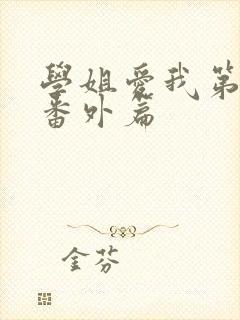 學姐愛我第
番外篇
金芬